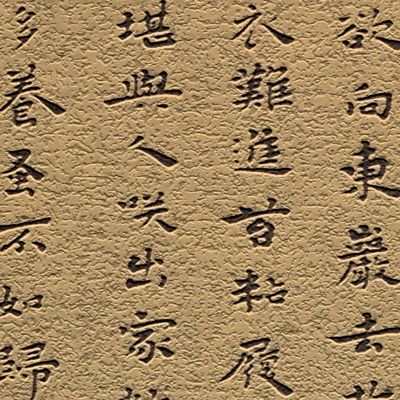 欲向東巖去
衣難進苔粘履
堪與人咲出家
多養蚤不如歸